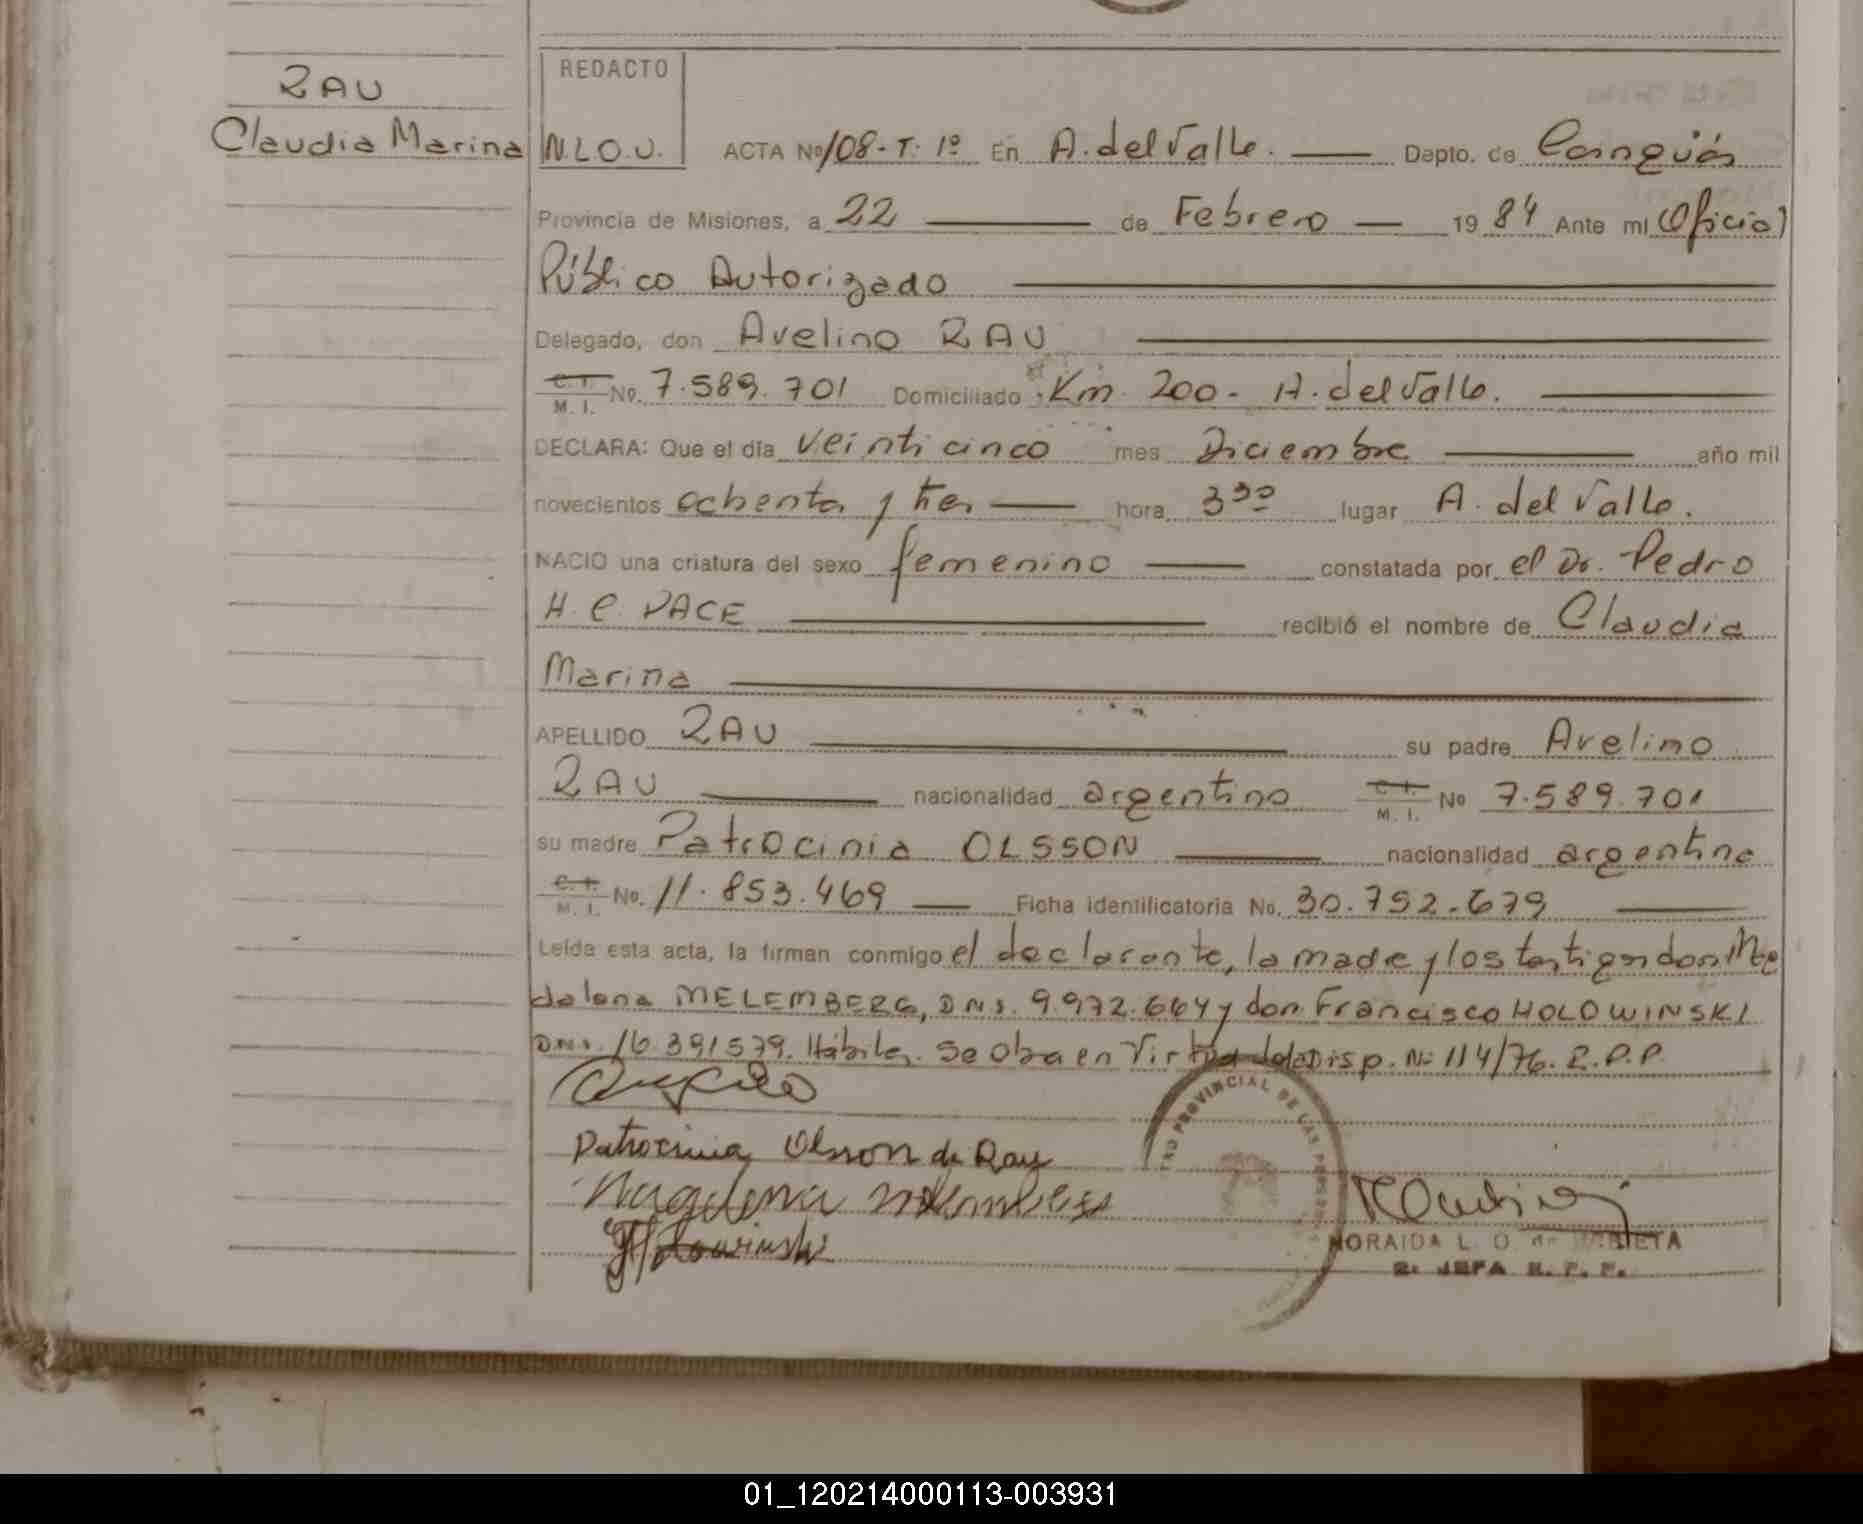 RAU
Claudia Marina
REDACTO
N.L.O.U.
ACTA No 108-T. 1º En A. del Valle. Depto. de Cainguás
Provincia de Misiones, a 22 de Febrero 19 84 Ante mí Oficial
Público Autorizado
Delegado, don Avelino RAU
C. I.
M. I. No. 7.589.701 Domiciliado Km. 200 - A. del Valle.
DECLARA: Que el día veinticinco mes Diciembre año mil
novecientos ochenta y tres hora 3 30 lugar A. del Valle.
NACIO una criatura del sexo femenino constatada por el Dr. Pedro
H. C. PACE recibió el nombre de Claudia
Marina
APELLIDO RAU su padre Avelino
RAU nacionalidad argentino C. I.
M. I. No 7.589.701
su madre Patrocinia OLSSON nacionalidad argentina
C. I.
M. I. No. 11.853.469 Ficha identificatoria No. 30.752.679
Leída esta acta, la firman conmigo el declarante, la madre y los testigos don Ma
dalena MELEMBERG, D.N.I. 9.972.664 y don Francisco HOLOWINSKI
D.N.I. 16.391579. Hábiles. Se obra en Virtud de la Disp. Nº 114/76. R.P.P.
Patrocinia Olsson de Rau
Magdalena
PROVINCIAL DE LAS PERSONAS
NORAIDA L. O. de
JEFA R. P. P.
01_120214000113-003931